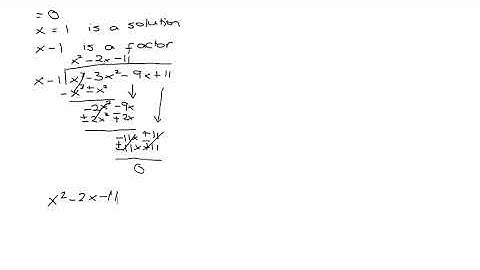 = 0
x = 1 is a solution
x - 1 is a factor
x² - 2x - 11
x - 1 x³ - 3x² - 9x + 11
- x³ ± x²
- 2x² - 9x
± 2x² ∓ 2x
- 11x + 11
± 11x ∓ 11
0
x² - 2x - 11